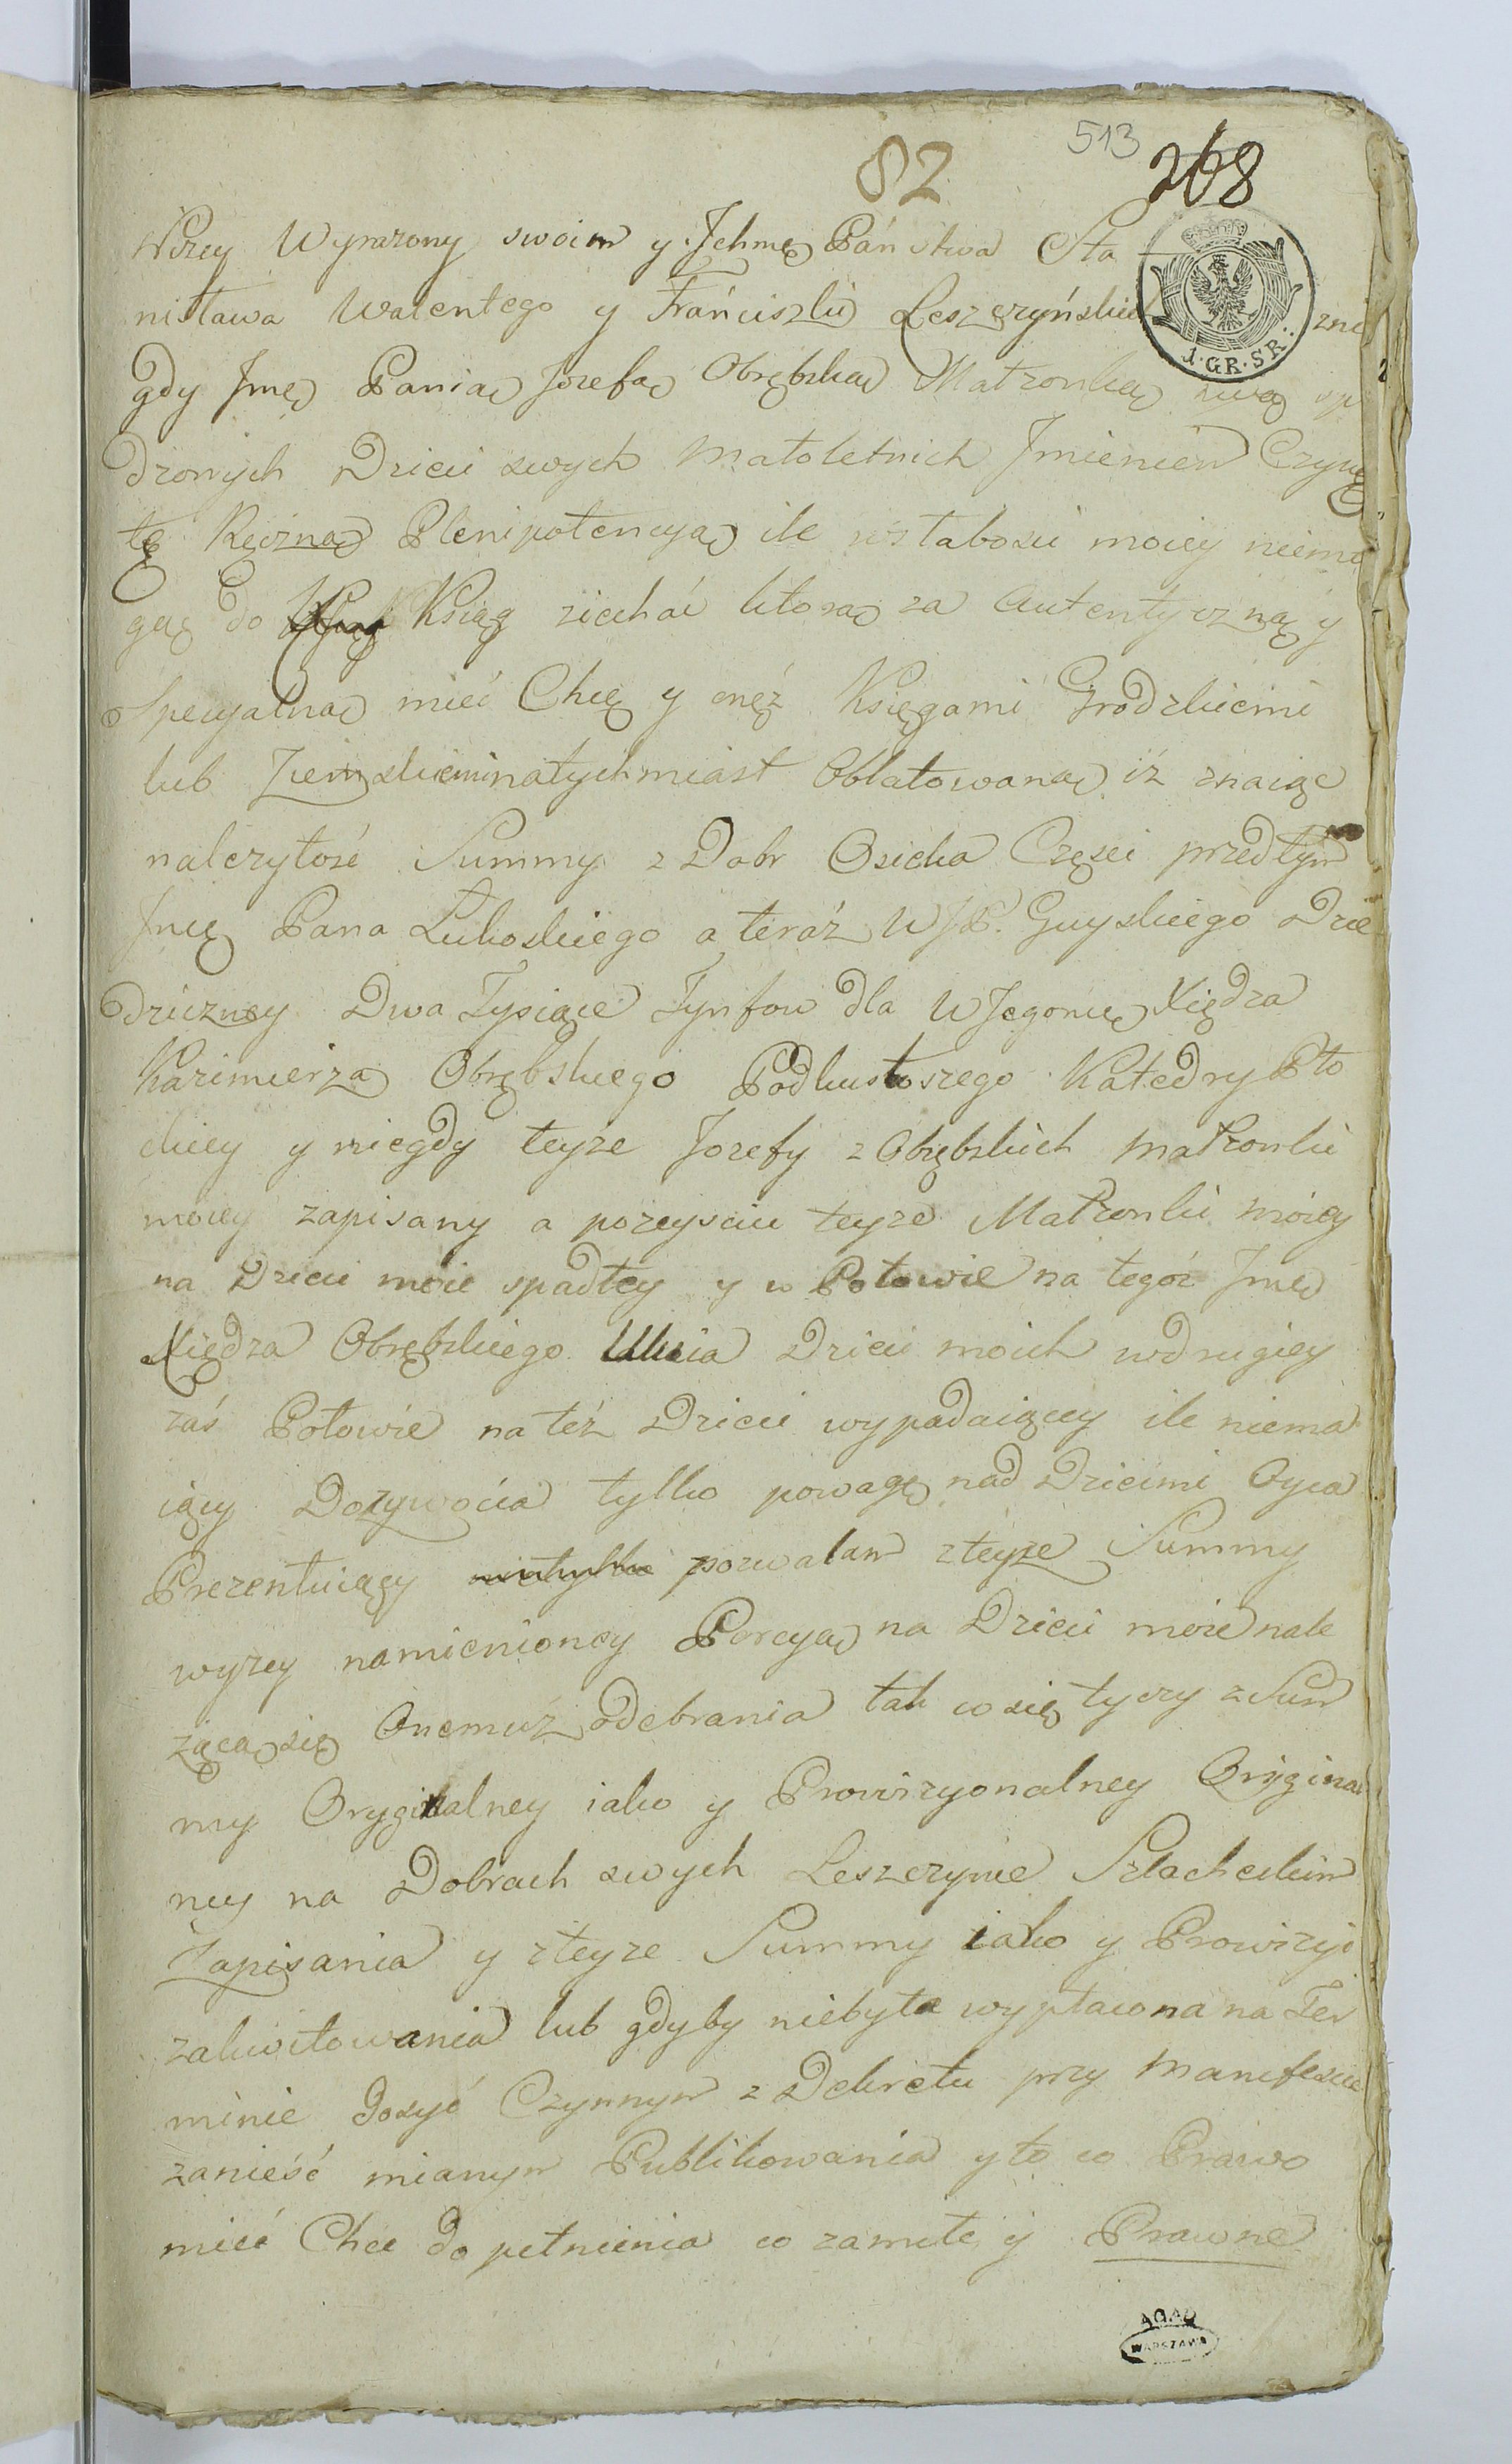 82
513
268
1. GR. SR.
Wszey Wyrazony swoim y Jchmę Państwa Sta
nisława Walentego y Frańciszki Leszczyńskich
gdy Jmę Panią Jozefą Obrębską Małzonką swą
dzonych Dzieci swych Małoletnich Jmieniem Czynię
tę Ręczną Plenipotencyą ile w słabosci moiey niemo
gąc do Ksiąg ziechać ktorą za Autentyczną y
Specyalną mieć Chcę y onęż Księgami Grodzkiemi
lub Ziemskiemi natychmiast Oblatowaną iż znaiąc
nalezytość Summy z Dobr Osicka Częsci przedtym
Jmę Pana Lukoskiego a teráz W JP. Guyskiego Dzie
dziczney Dwa Tysiące Tynfow dla W Jegomę Xiędza
Kazimierza Obrębskiego Podkustoszego Katedry Pło
ckiey y niegdy teyze Jozefy z Obrębskich Małzonki
moiey zapisany a pozeysciu teyze Małzonki moiey
na Dzieci moie spadłey y w Połowie na tegoż Jmę
Xiędza Obrębskiego Wuia Dzieci moich wdrugiey
zaś Połowie na też Dzieci wypadaiącey ile niema
iący Dozywocia tylko powagę nad Dziecmi Oyca
Prezentuiący nietylko pozwalam zteyze Summy
wyzey namienioney Porcyą na Dzieci moie nale
ząca się Onemuż odebrania tak co się tyczy z Sum
my Oryginalney iako y Prowizyonalney Oryginal
ney na Dobrach swych Leszczynie Szlacheckim
Zapisania y zteyze Summy iako y Prowizyi
zakwitowania lub gdyby niebyła wypłacona na Ter
minie dosyć Czynnym z Dekretu przy Manifescie
zanieść mianym Publikowania y to co Prawo
mieć Chce do pełnienia co zamiłe y Prawne
AGAD
WARSZAWA